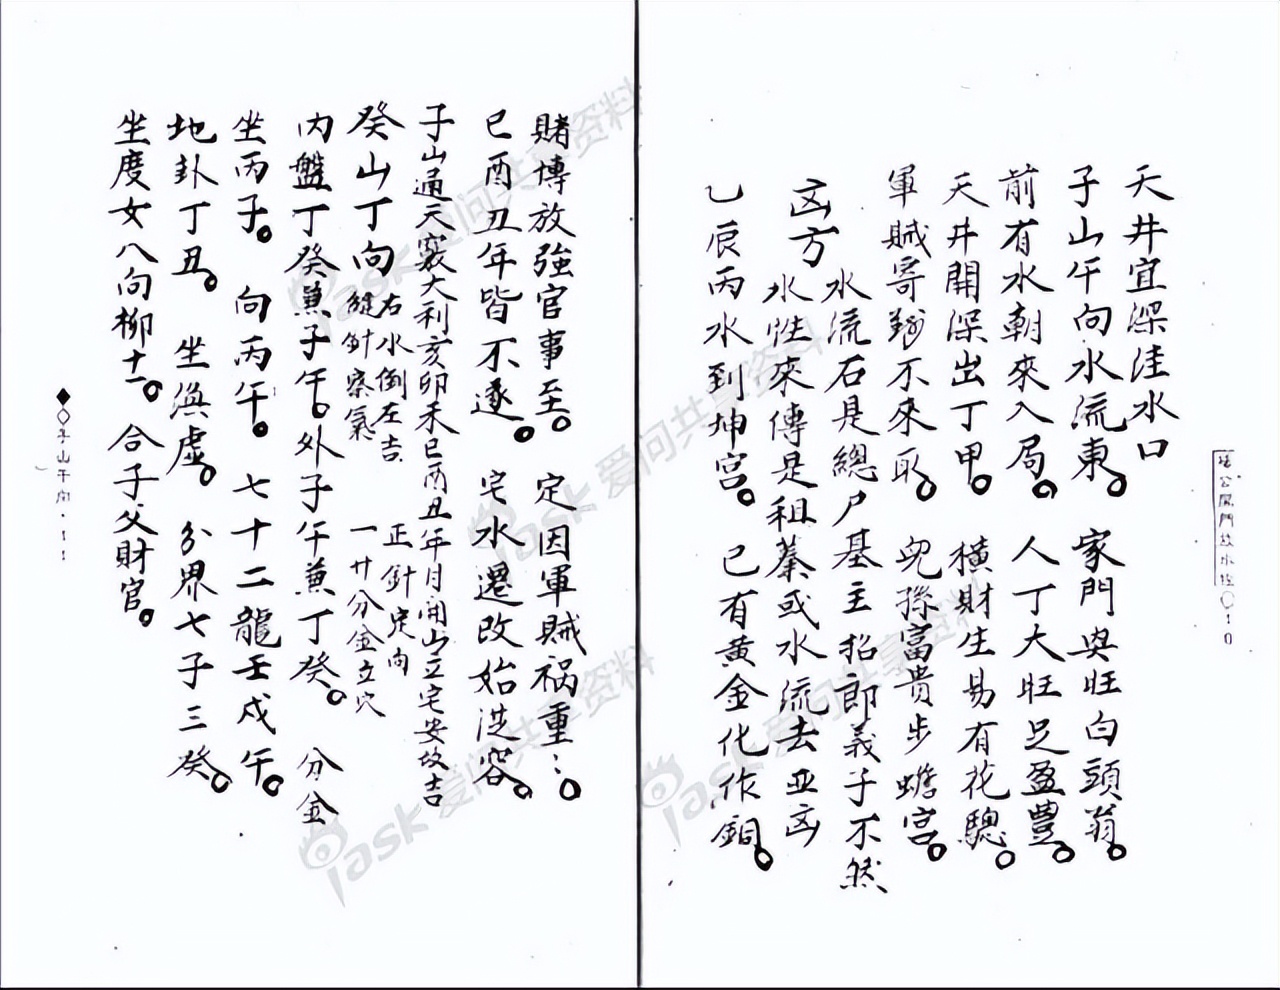 天井宜深洼水口
子山午向水流東。 家門興旺白頭翁。
前有水朝來入局。 人丁大旺足盈豐。
天井開深出丁甲。 橫財生易有花驄。
軍賊寄 不來取。 兒孫富貴步蟾宮。
水流石是總尸基主招郎義子不然
凶方 水性來傳是祖墓或水流去亚凶
乙辰丙水到坤宮。 已有黄金化作銅。
放水 ○:0
賭博放強官事至。 定因軍賊祸重:。
巳酉丑年皆不遂。 宅水遷改始 容。
子山通天竅大利亥卯未巳酉丑年月開山立宅安坟吉
癸山丁向 右水倒左吉 正針定向
縫針察氣 一廿分金立穴
内盤丁癸兼子午。外子午兼丁癸。 分金
坐丙子。 向丙午。 七十二龍壬戍午。
地卦丁丑。 坐渙虛。 分界七子三癸。
坐度女八向柳十一。 合子父財官。
◆◇子山午向·11
iask爱问共享资料